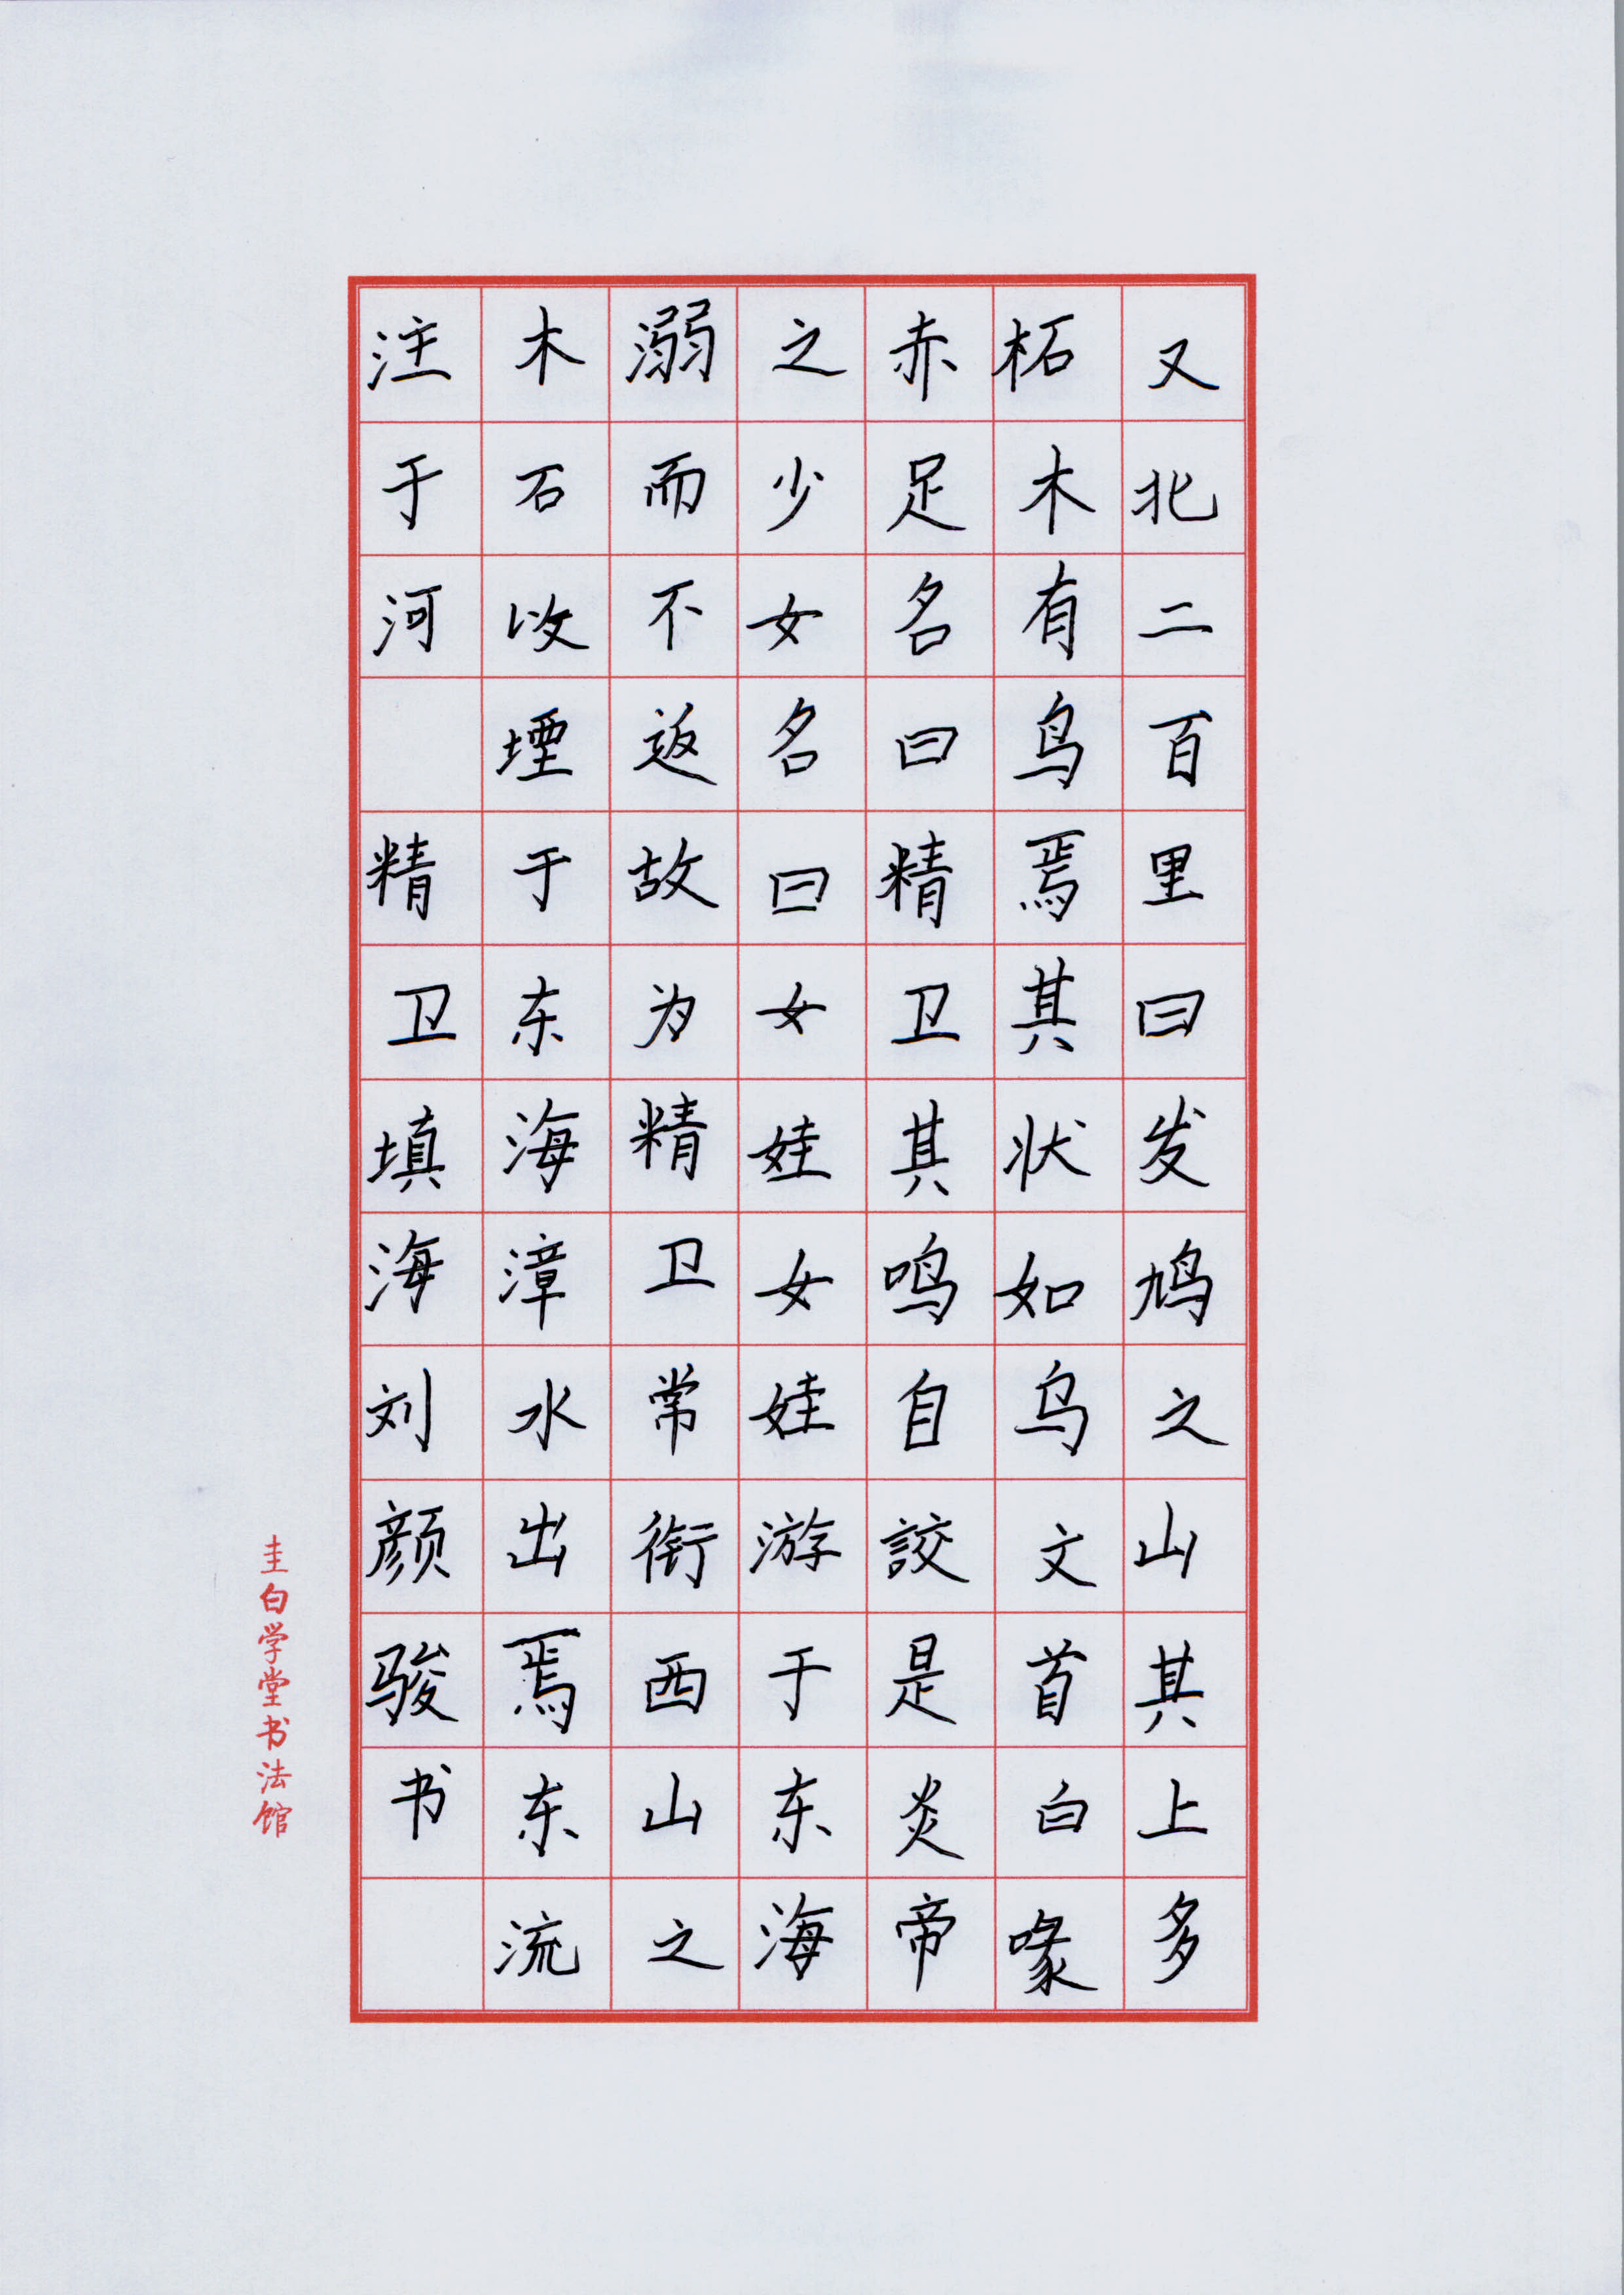 又北二百里曰发鸠之山其上多
柘木有鸟焉其状如乌文首白喙
赤足名曰精卫其鸣自詨是炎帝
之少女名曰女娃女娃游于东海
溺而不返故为精卫常衔西山之
木石以堙于东海漳水出焉东流
注于河 精卫填海刘颜骏书
圭白学堂书法馆